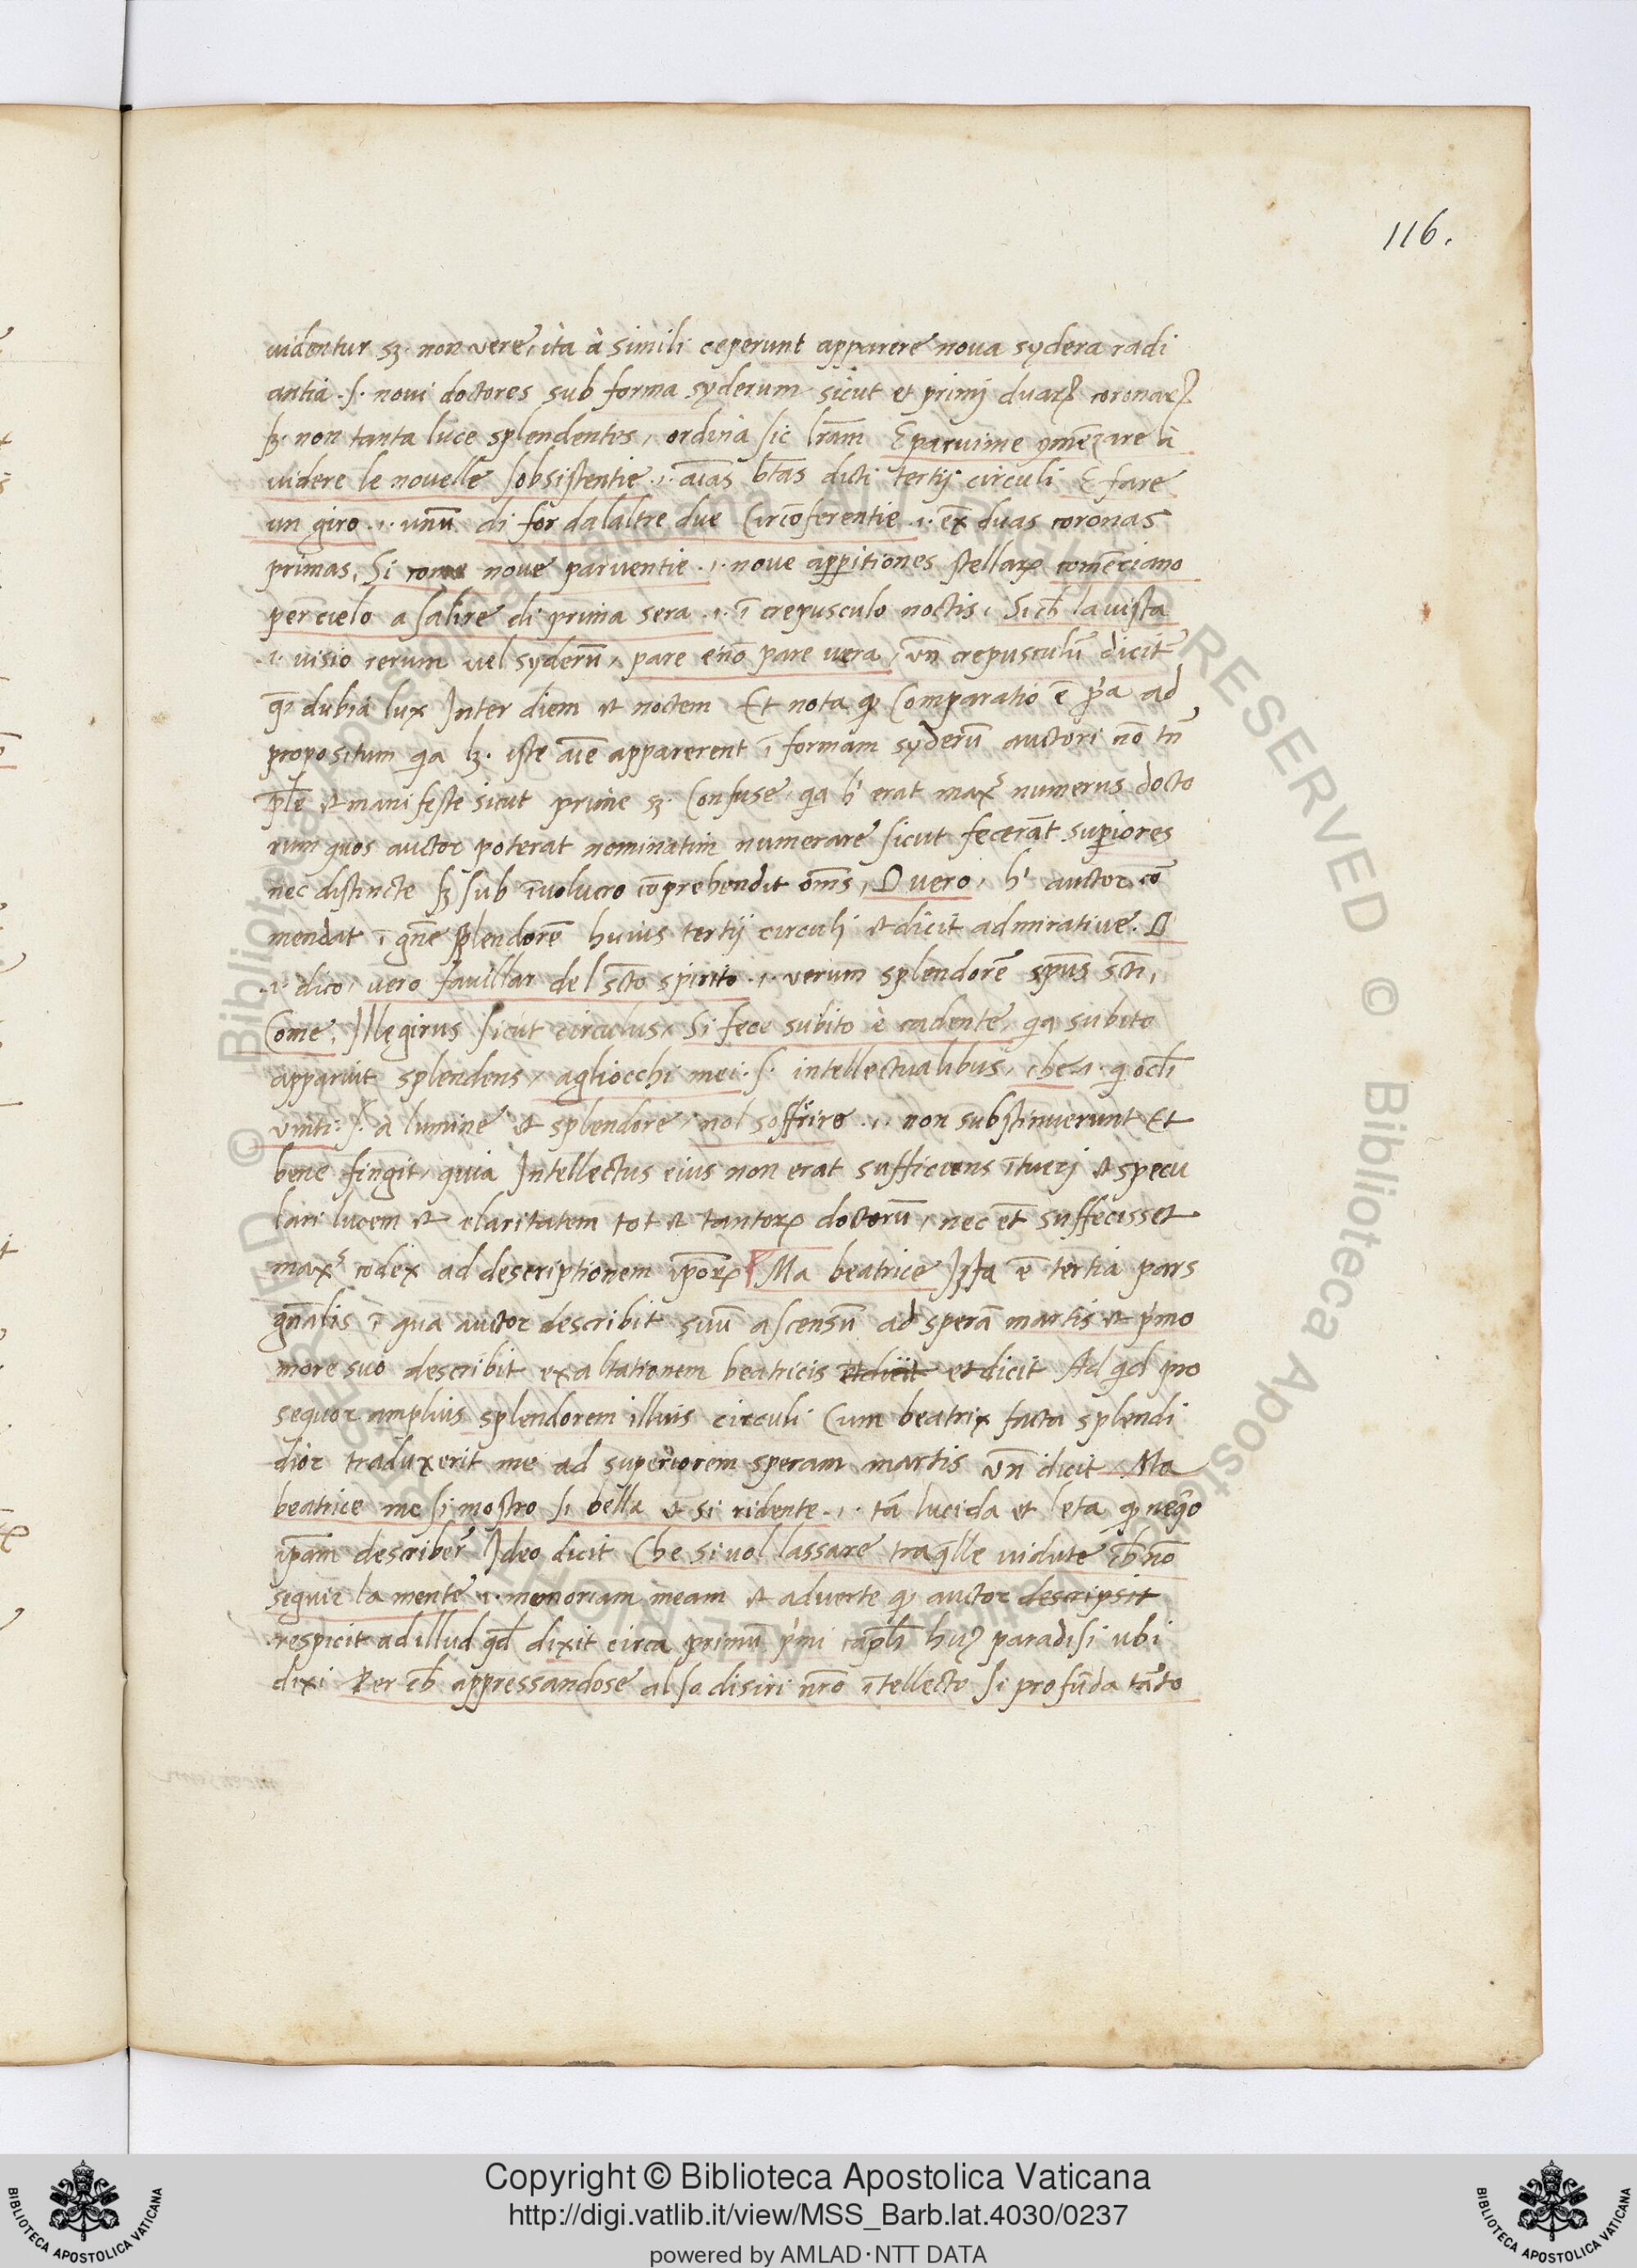 116.
uidentur sꝫ. non vere, ita à simili ceperunt apparere noua sydera radi
antia .s. noui doctores sub forma syderum sicut et primj duarꝝ coronarꝝ
lꝫ. non tanta luce splendentes, ordina sic lr̃am E paruime cominẽzare li
uidere le nouelle sobsistentie .i. aĩas bt̃as dicti tertij circuli E fare
un giro .i. unũ di for dalaltre due Circõferentie .i. ex̃ duas coronas
primas, Si come noue paruentie .i. noue apparitiones stellarꝝ comẽciano
per cielo a salire di prima sera .i. ĩ crepusculo noctis, Si ch̃ la uista
.i. visio rerum vel syderũ, pare enõ pare uera, vñ crepusculũ dicit̃
q̃i dubia lux Inter diem et noctem Et nota ꝙ Comparatio ẽ p̃a ad
propositum qa lꝫ. iste aĩe apparerent ĩ formam syderũ auctori nõ tñ
et manifeste sicut prime sꝫ. Confuse, qa h' erat maxˢ numerus docto
rum quos auctor poterat nominatim numerare sicut fecerãt superiores
nec distincte sꝫ sub ĩuolucro cõprehendit om̃s, O uero, h' auctor cõ
mendat ĩ gñe splendorẽ huius tertij circulj et dicit admiratiue. O
.i. dico, uero fauillar del scto spirito .i. verum splendorẽ spũs scti,
Come, Ille girus sicut circulus, Si fece subito è cadente, qa subito
apparuit splendens, agliocchi mei .s. intellectualibus, che .i. q oclĩ
vinti .s. à lumine et splendore, nol soffriro .i. non substinuerunt Et
bene fingit, quia Intellectus eius non erat sufficiens ĩtuerj et specu
lari lucem et claritatem tot et tantorꝝ doctorũ, nec et̃ suffecisset
maxˢ codex ad descriptionem ip̃orꝝ Ma beatrice Ista ẽ tertia pars
gñalis ĩ qua auctor describit suũ ascensũ ad sperã martis et p̃mo
more suo describit exaltationem beatricis et dicit et dicit Ad qd pro
sequor amplius splendorem illius circuli Cum beatrix facta splendi
dior traduxerit me ad superiorem speram martis vñ dicit Ma
beatrice me si mostro si bella et si ridente .i. tã lucida et leta ꝙ neq̃o
ip̃am describer̃ Ideo dicit Che si uol lassare tra q̃lle uidute ch̃ nõ
seguir la mente .i. memoriam meam et aduerte ꝙ auctor descripsit
respicit ad illud qd̃ dixit circa primũ p̃mi capl̃i huꝰ paradisi ubi
dixi Per ch̃ appressandose al so disiri nr̃o ĩtellecto si profũda tãto
Copyright © Biblioteca Apostolica Vaticana
http://digi.vatlib.it/view/MSS_Barb.lat.4030/0237
powered by AMLAD·NTT DATA